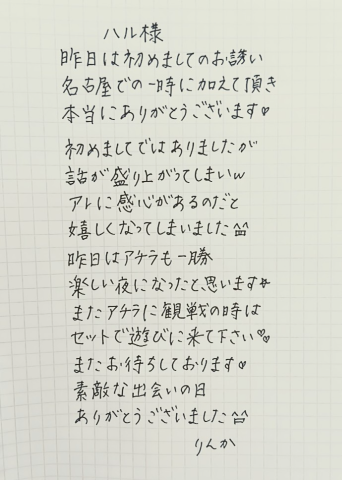 ハル様
昨日は初めましてのお誘い
名古屋での一時に加えて頂き
本当にありがとうございます♡
初めましてではありましたが
話が盛り上がってしまいw
アトに感心があるのだと
嬉しくなってしまいました^^
昨日はアチラも一勝
楽しい夜になったと思います☆
またアチラに観戦の時は
セットで遊びに来て下さい♡
またお待ちしております♡
素敵な出会いの日
ありがとうございました^^
りんか